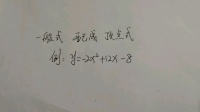 一般式 配成 顶点式
例：y=-2x²+12x-8